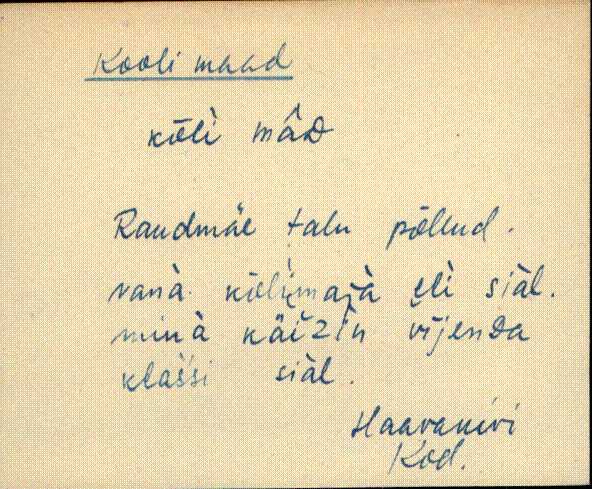 Kooli maad
kōlì mâᴅ
Raudmäe talu põllud.
vanà kōlìmajà ɛlì siàl.
minà käizìn vījenᴅa
klaśsi siàl.
Haavakivi
Kod.